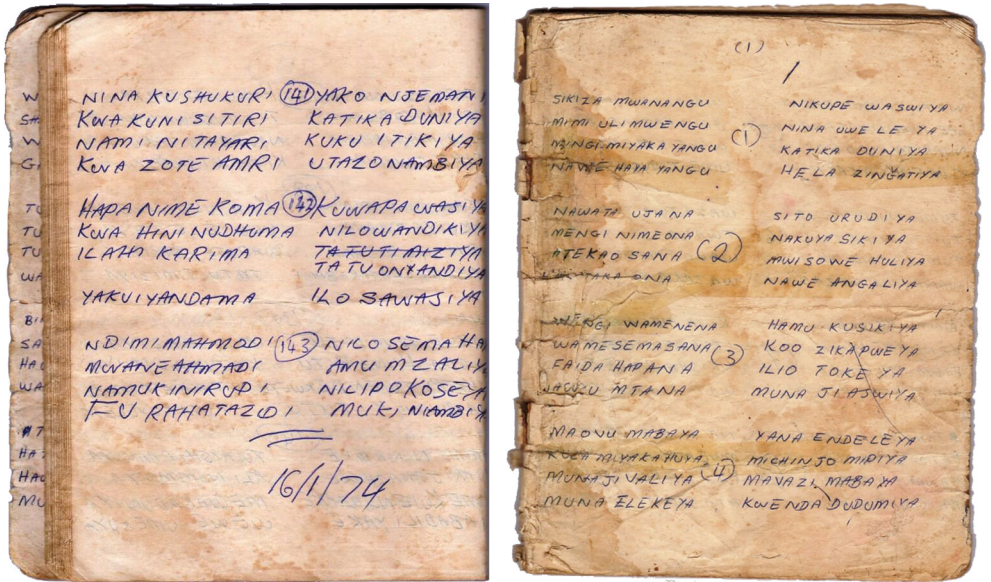 NINA KUSHUKURI (141) YAKO NJEMATI
KWA KUNI SITIRI KATIKA DUNIYA
NAMI NITAYARI KUKU ITIKIYA
KWA ZOTE AMRI UTAZONAMBIYA
HAPA NIME KOMA (142) KUWAPA WASIYA
KWA HINI NUDHUMA NILOWANDIKIYA
ILAHI KARIMA
TATUONYANDIYA
YAKUIYANDAMA ILO SAWASIYA
NDIMI MAHMODI (143) NILO SEMA HA
MWANE AHMADI AMU MZALIY
NAMUKINIRUDI NILIPOKOSEYA
FURAHATAZIDI MUKI NIAMBIYA
16/1/74
(1)
1
SIKIZA MWANANGU NIKUPE WASWIYA
MIMI ULIMWENGU (1) NINA UWELE YA
MINGI MIYAKA YANGU KATIKA DUNIYA
NAWE HAYA YANGU HELA ZINGATIYA
NAWATA UJANA SITO URUDIYA
MENGI NIMEONA NAKUYA SIKIYA
ATEKAO SANA (2) MWISOWE HULIYA
ONA NAWE ANGALIYA
WENGI WAMENENA HAMU KUSIKIYA
WAMESEMA SANA (3) KOO ZIKAPWEYA
FAIDA HAPANA ILIO TOKE YA
MTANA MUNA JIASWIYA
MAOVU MABAYA YANA ENDELEYA
KULA MIYAKAHUYA MICHINJO MIPIYA
MUNAJIVALIYA (4) MAVAZI MABAYA
MUNA ELEKEYA KWENDA DUDUMIYA